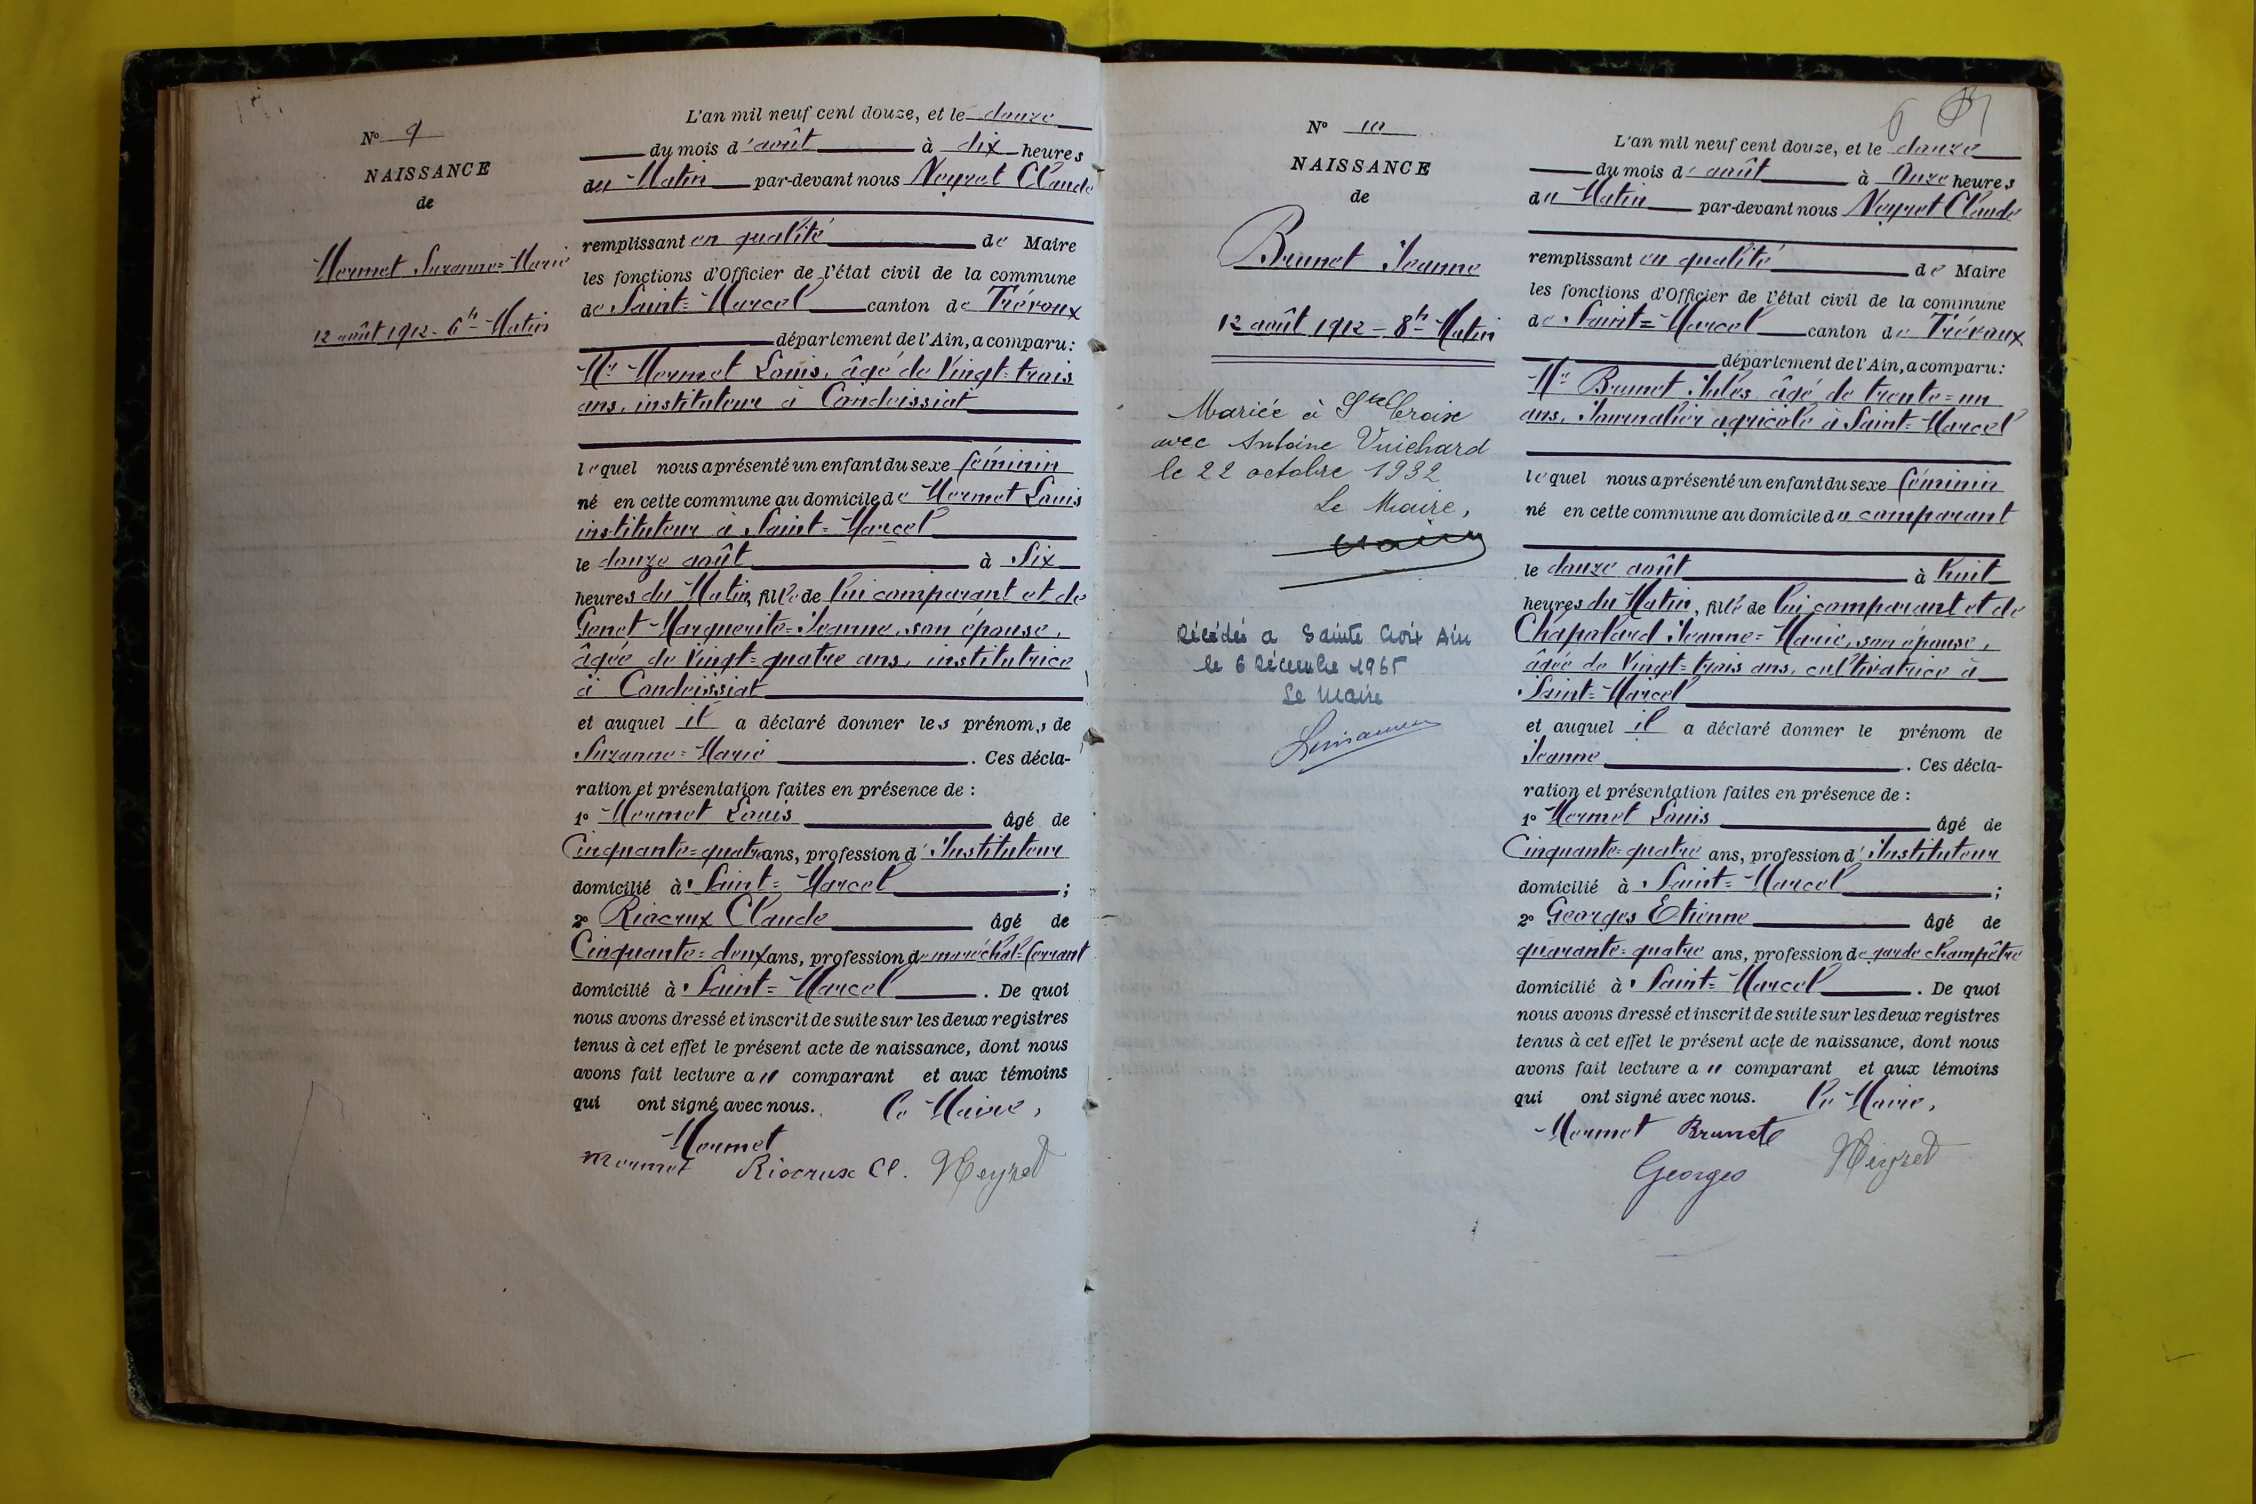 N° 9
NAISSANCE
de
Mermet Suzanne=Marie
12 août 1912 - 6h Matin
L'an mil neuf cent douze, et le douze
du mois d'août à dix heures
du Matin par-devant nous Neyret Claude
remplissant en qualité de Maire
les fonctions d'Officier de l'état civil de la commune
de Saint=Marcel canton de Trévoux
département de l'Ain, a comparu:
Mr Mermet Louis, âgé de Vingt=trois
ans, instituteur à Condeissiat
lequel nous a présenté un enfant du sexe féminin
né en cette commune au domicile de Mermet Louis
instituteur à Saint=Marcel
le douze août à Six
heures du Matin, fille de lui comparant et de
Genet Marguerite=Jeanne, son épouse,
âgée de Vingt=quatre ans, institutrice
à Condeissiat
et auquel il a déclaré donner les prénoms de
Suzanne=Marie. Ces décla-
ration et présentation faites en présence de :
1° Mermet Louis âgé de
Cinquante=quatre ans, profession d'Instituteur
domicilié à Saint=Marcel ;
2° Riocrux Claude âgé de
Cinquante=deux ans, profession de maréchal=ferrant
domicilié à Saint=Marcel. De quoi
nous avons dressé et inscrit de suite sur les deux registres
tenus à cet effet le présent acte de naissance, dont nous
avons fait lecture au comparant et aux témoins
qui ont signé avec nous. Le Maire,
Mermet
Mermet Riocrux Cl. Neyret
6
N° 10
NAISSANCE
de
Brunet Jeanne
12 août 1912 - 8h Matin
Mariée à Ste Croix
avec Antoine Vuichard
le 22 octobre 1932
Le Maire,
Décédée a Sainte Croix Ain
le 6 Décembre 1965
Le Maire
L'an mil neuf cent douze, et le douze
du mois d'août à Onze heures
du Matin par-devant nous Neyret Claude
remplissant en qualité de Maire
les fonctions d'Officier de l'état civil de la commune
de Saint=Marcel canton de Trévoux
département de l'Ain, a comparu:
Mr Brunet Jules âgé de trente=un
ans, Journalier agricole à Saint=Marcel
lequel nous a présenté un enfant du sexe féminin
né en cette commune au domicile du comparant
le douze août à huit
heures du Matin, fille de lui comparant et de
Chapolard Jeanne=Marie, son épouse,
âgée de Vingt=trois ans, cultivatrice à
Saint=Marcel
et auquel il a déclaré donner le prénom de
Jeanne. Ces décla-
ration et présentation faites en présence de :
1° Mermet Louis âgé de
Cinquante=quatre ans, profession d'Instituteur
domicilié à Saint=Marcel ;
2° Georges Etienne âgé de
quarante=quatre ans, profession de garde champêtre
domicilié à Saint=Marcel. De quoi
nous avons dressé et inscrit de suite sur les deux registres
tenus à cet effet le présent acte de naissance, dont nous
avons fait lecture au comparant et aux témoins
qui ont signé avec nous. Le Maire,
Mermet Brunet
Georges Neyret